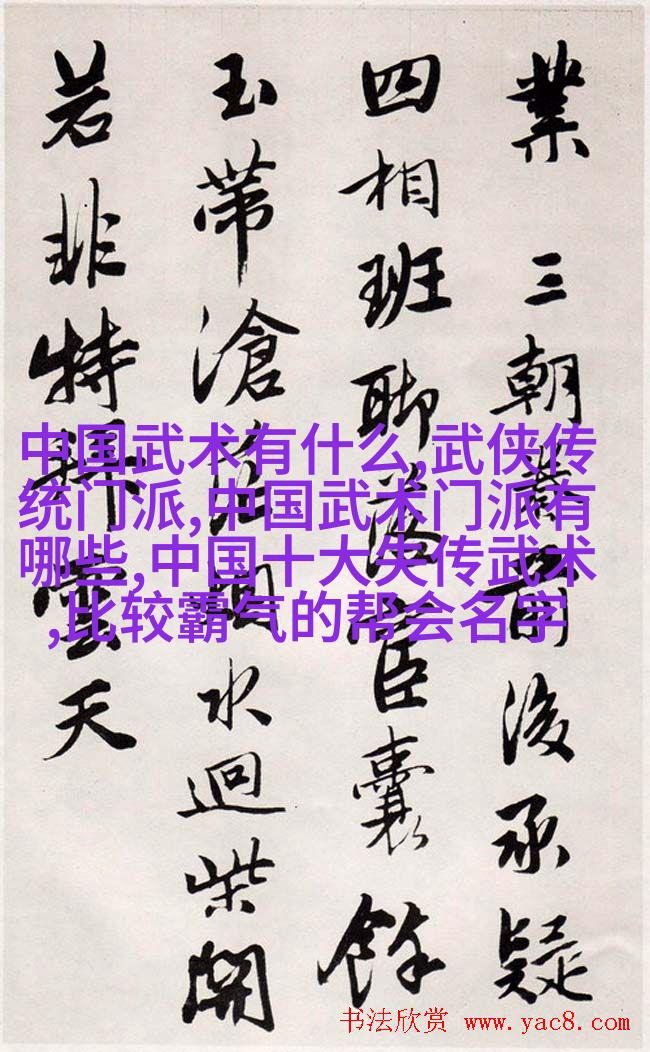 業 三朝前後承疑
四相班聊臣囊餘
玉帶滄水迴柴開
若非特天
中国武术有什么,武侠传
统门派,中国武术门派有
哪些,中国十大失传武术
,比较霸气的帮会名字
书法欣赏 www.yac8.com